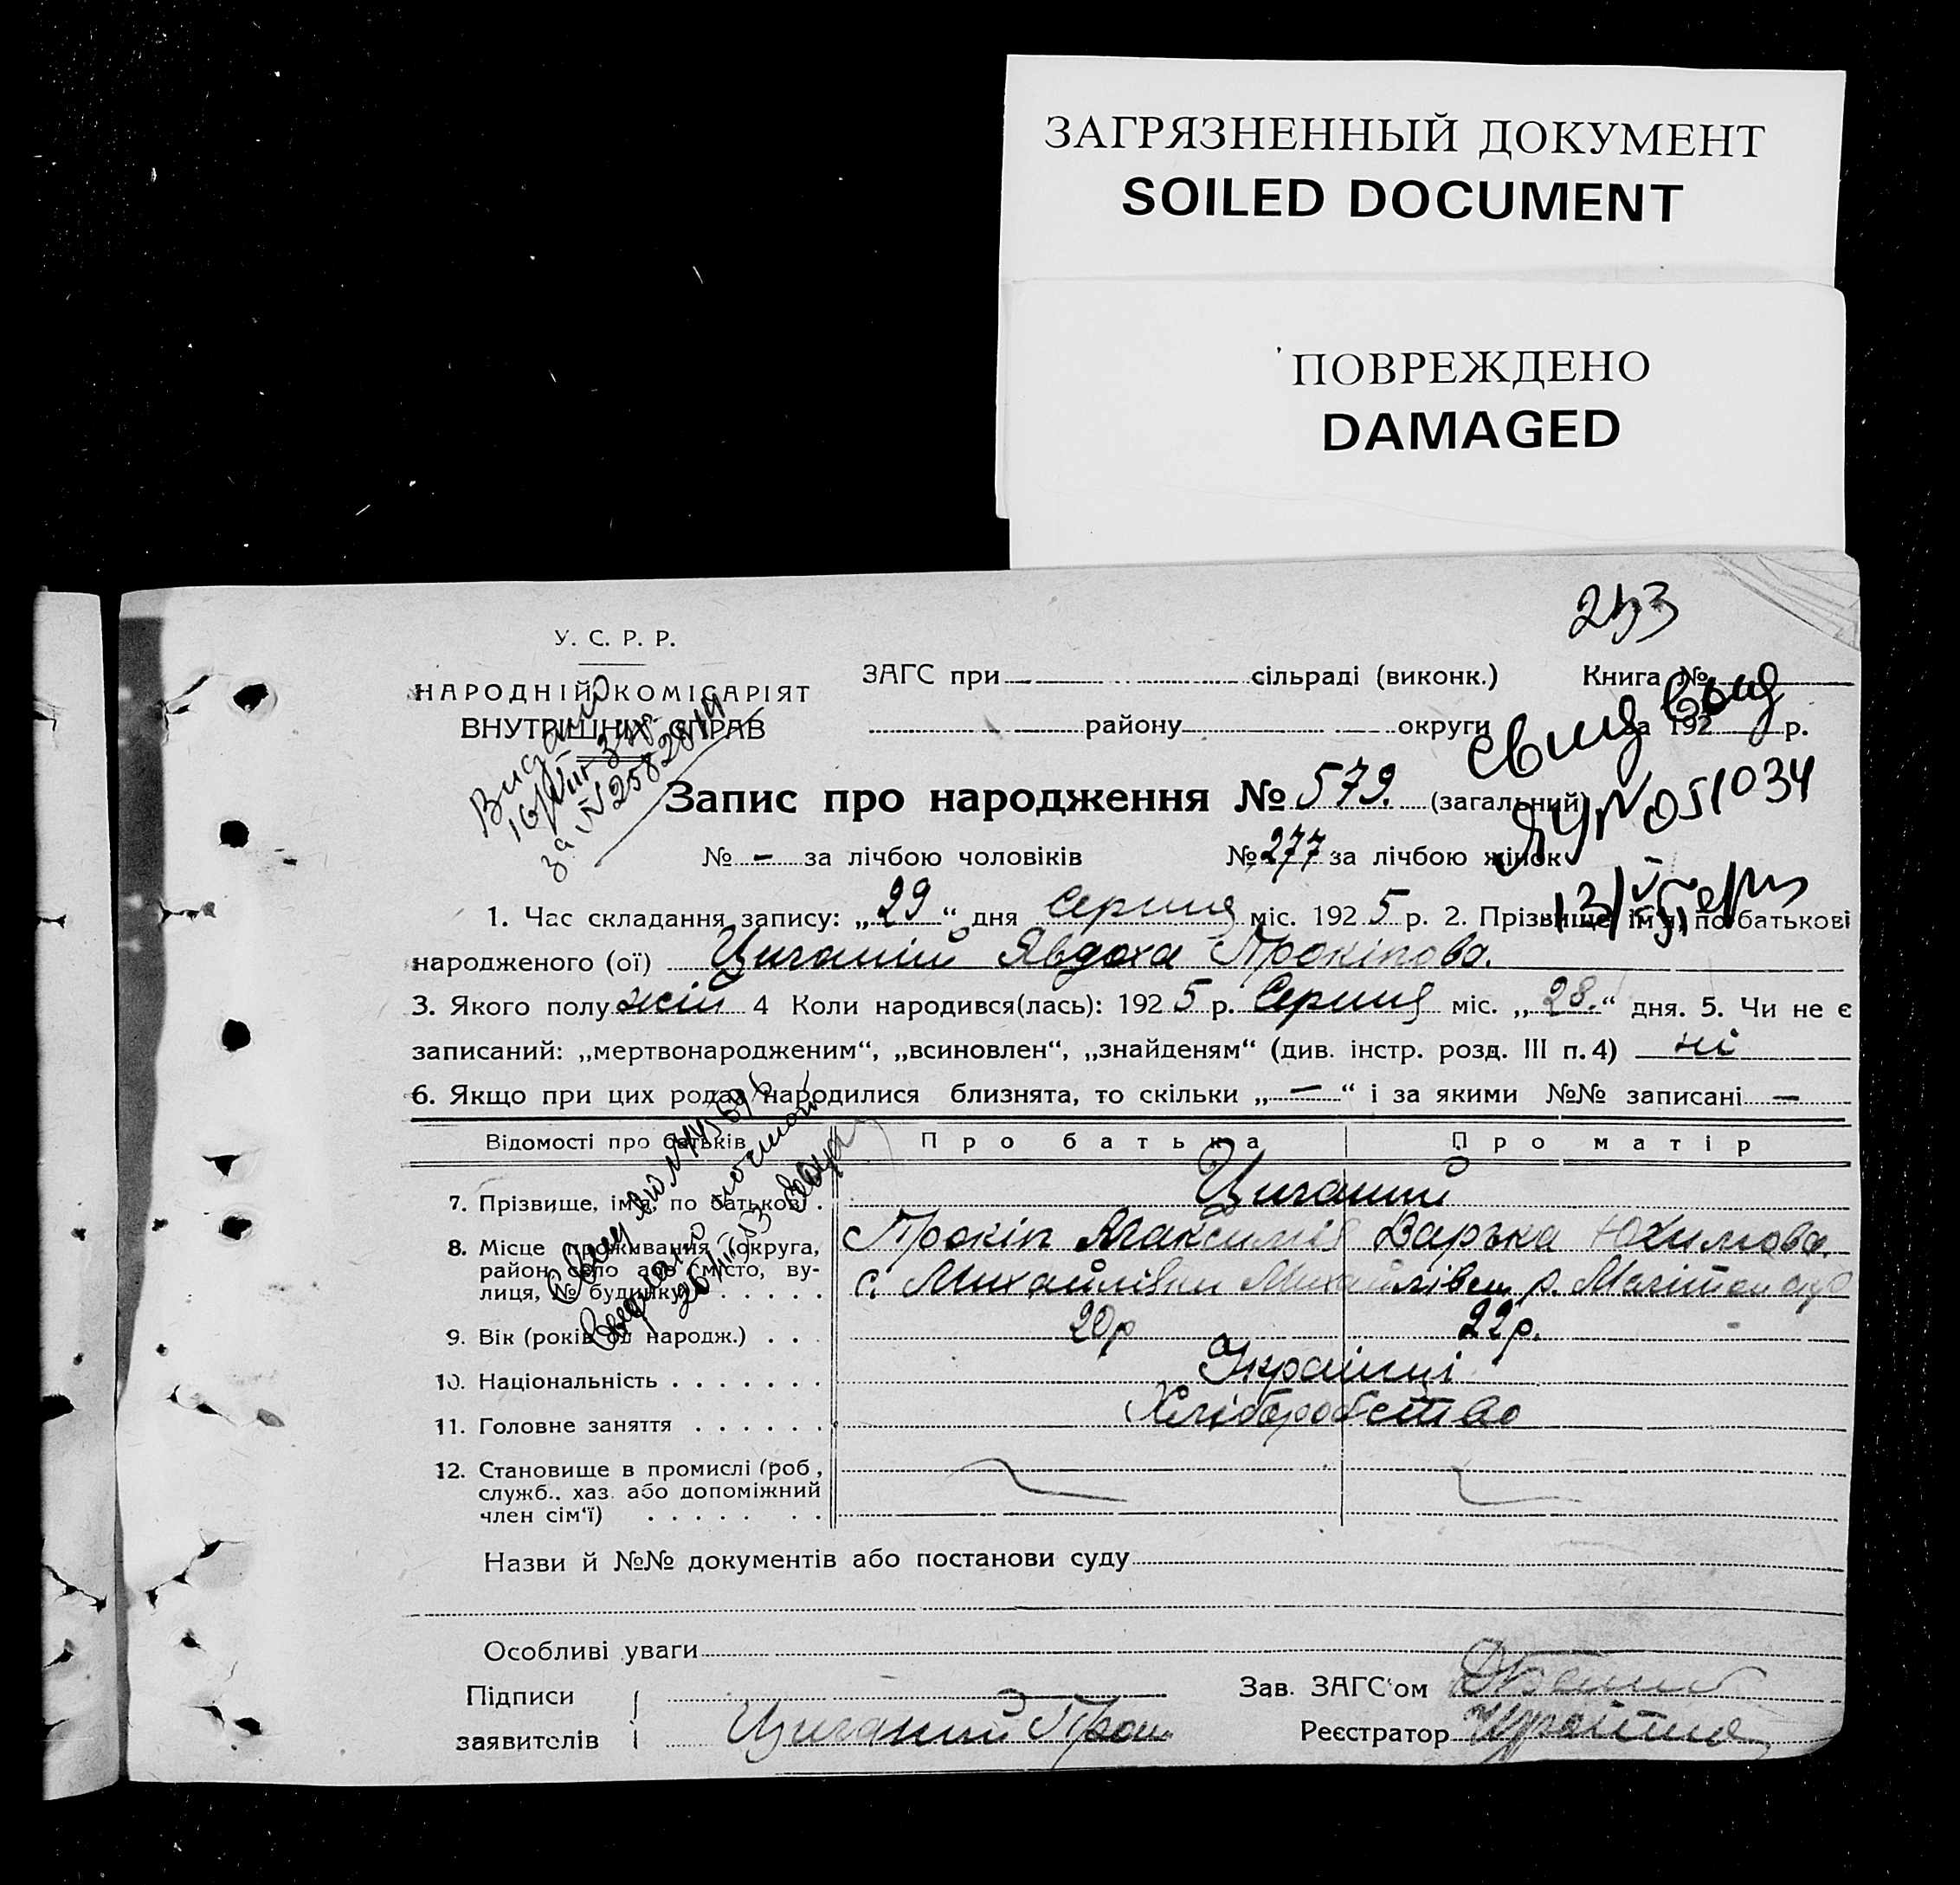 ЗАГРЯЗНЕННЫЙ ДОКУМЕНТ
SOILED DOCUMENT
ПОВРЕЖДЕНО
DAMAGED
253
У. С. Р. Р.
НАРОДНІЙ КОМІСАРІЯТ
ВНУТРІШНІХ СПРАВ
ЗАГС при сільраді (виконк.) Книга №
району округи за 192 р.
Видано
за №
Запис про народження № 579. (загальний)
№ – за лічбою чоловіків № 277 за лічбою жінок
1. Час складання запису: „29“ дня Серпня міс. 1925 р. 2. Прізвище, ім'я, по батькові
народженого (ої) Циганій Явдоха Прокіпова.
3. Якого полу жін 4 Коли народився(лась): 1925 р. Серпня міс. „28.“ дня. 5. Чи не є
записаний: „мертвонародженим“, „всиновлен“, „знайденям“ (див. інстр. розд. III п. 4) ні
6. Якщо при цих родах народилися близнята, то скільки „—“ і за якими №№ записані —
Відомості про батьків Про батька Про матір
7. Прізвище, ім'я, по батькові . Циганий
Прокіп Максимів Варька Юхимова.
8. Місце проживання (округа,
район, село або місто, ву-
лиця, № будинку) . . . . . с. Михайлівки Михайлівськ р.
9. Вік (років од народж.) . . . 20р 22р.
10. Національність . . . . . . . Українці
11. Головне заняття . . . . . . Хліборобство
12. Становище в промислі (роб,
служб., хаз. або допоміжний
член сім'ї) . . . . . . .
Назви й №№ документів або постанови суду
Особливі уваги
Підписи Зав. ЗАГС'ом
заявителів Циганий Прок Реєстратор